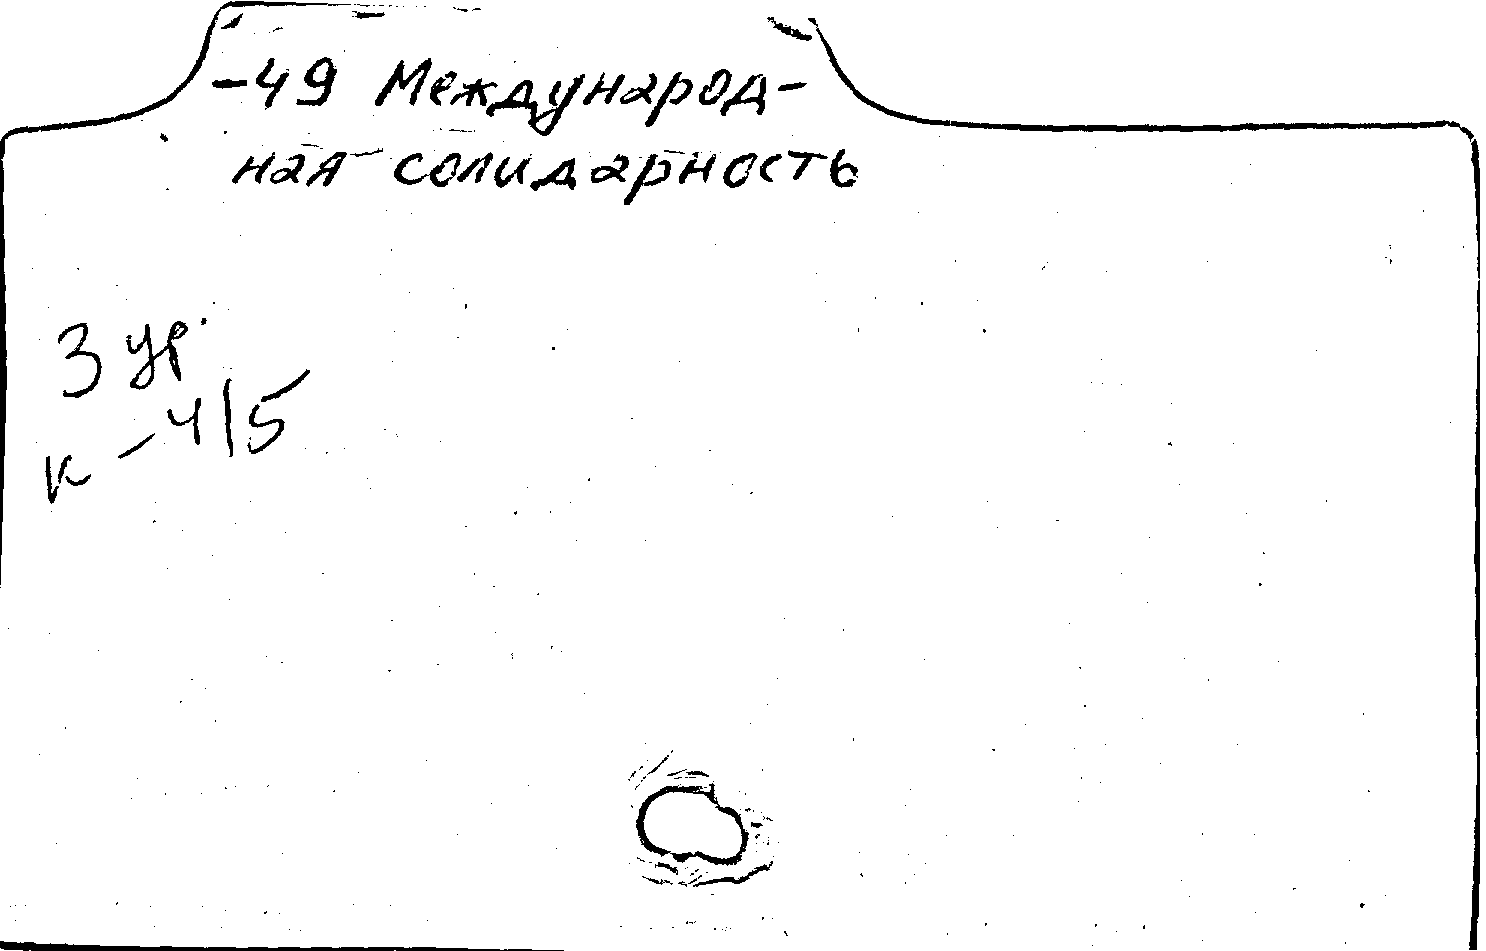 -49 Международ-
ная солидарность
3 ур.
к -4/5